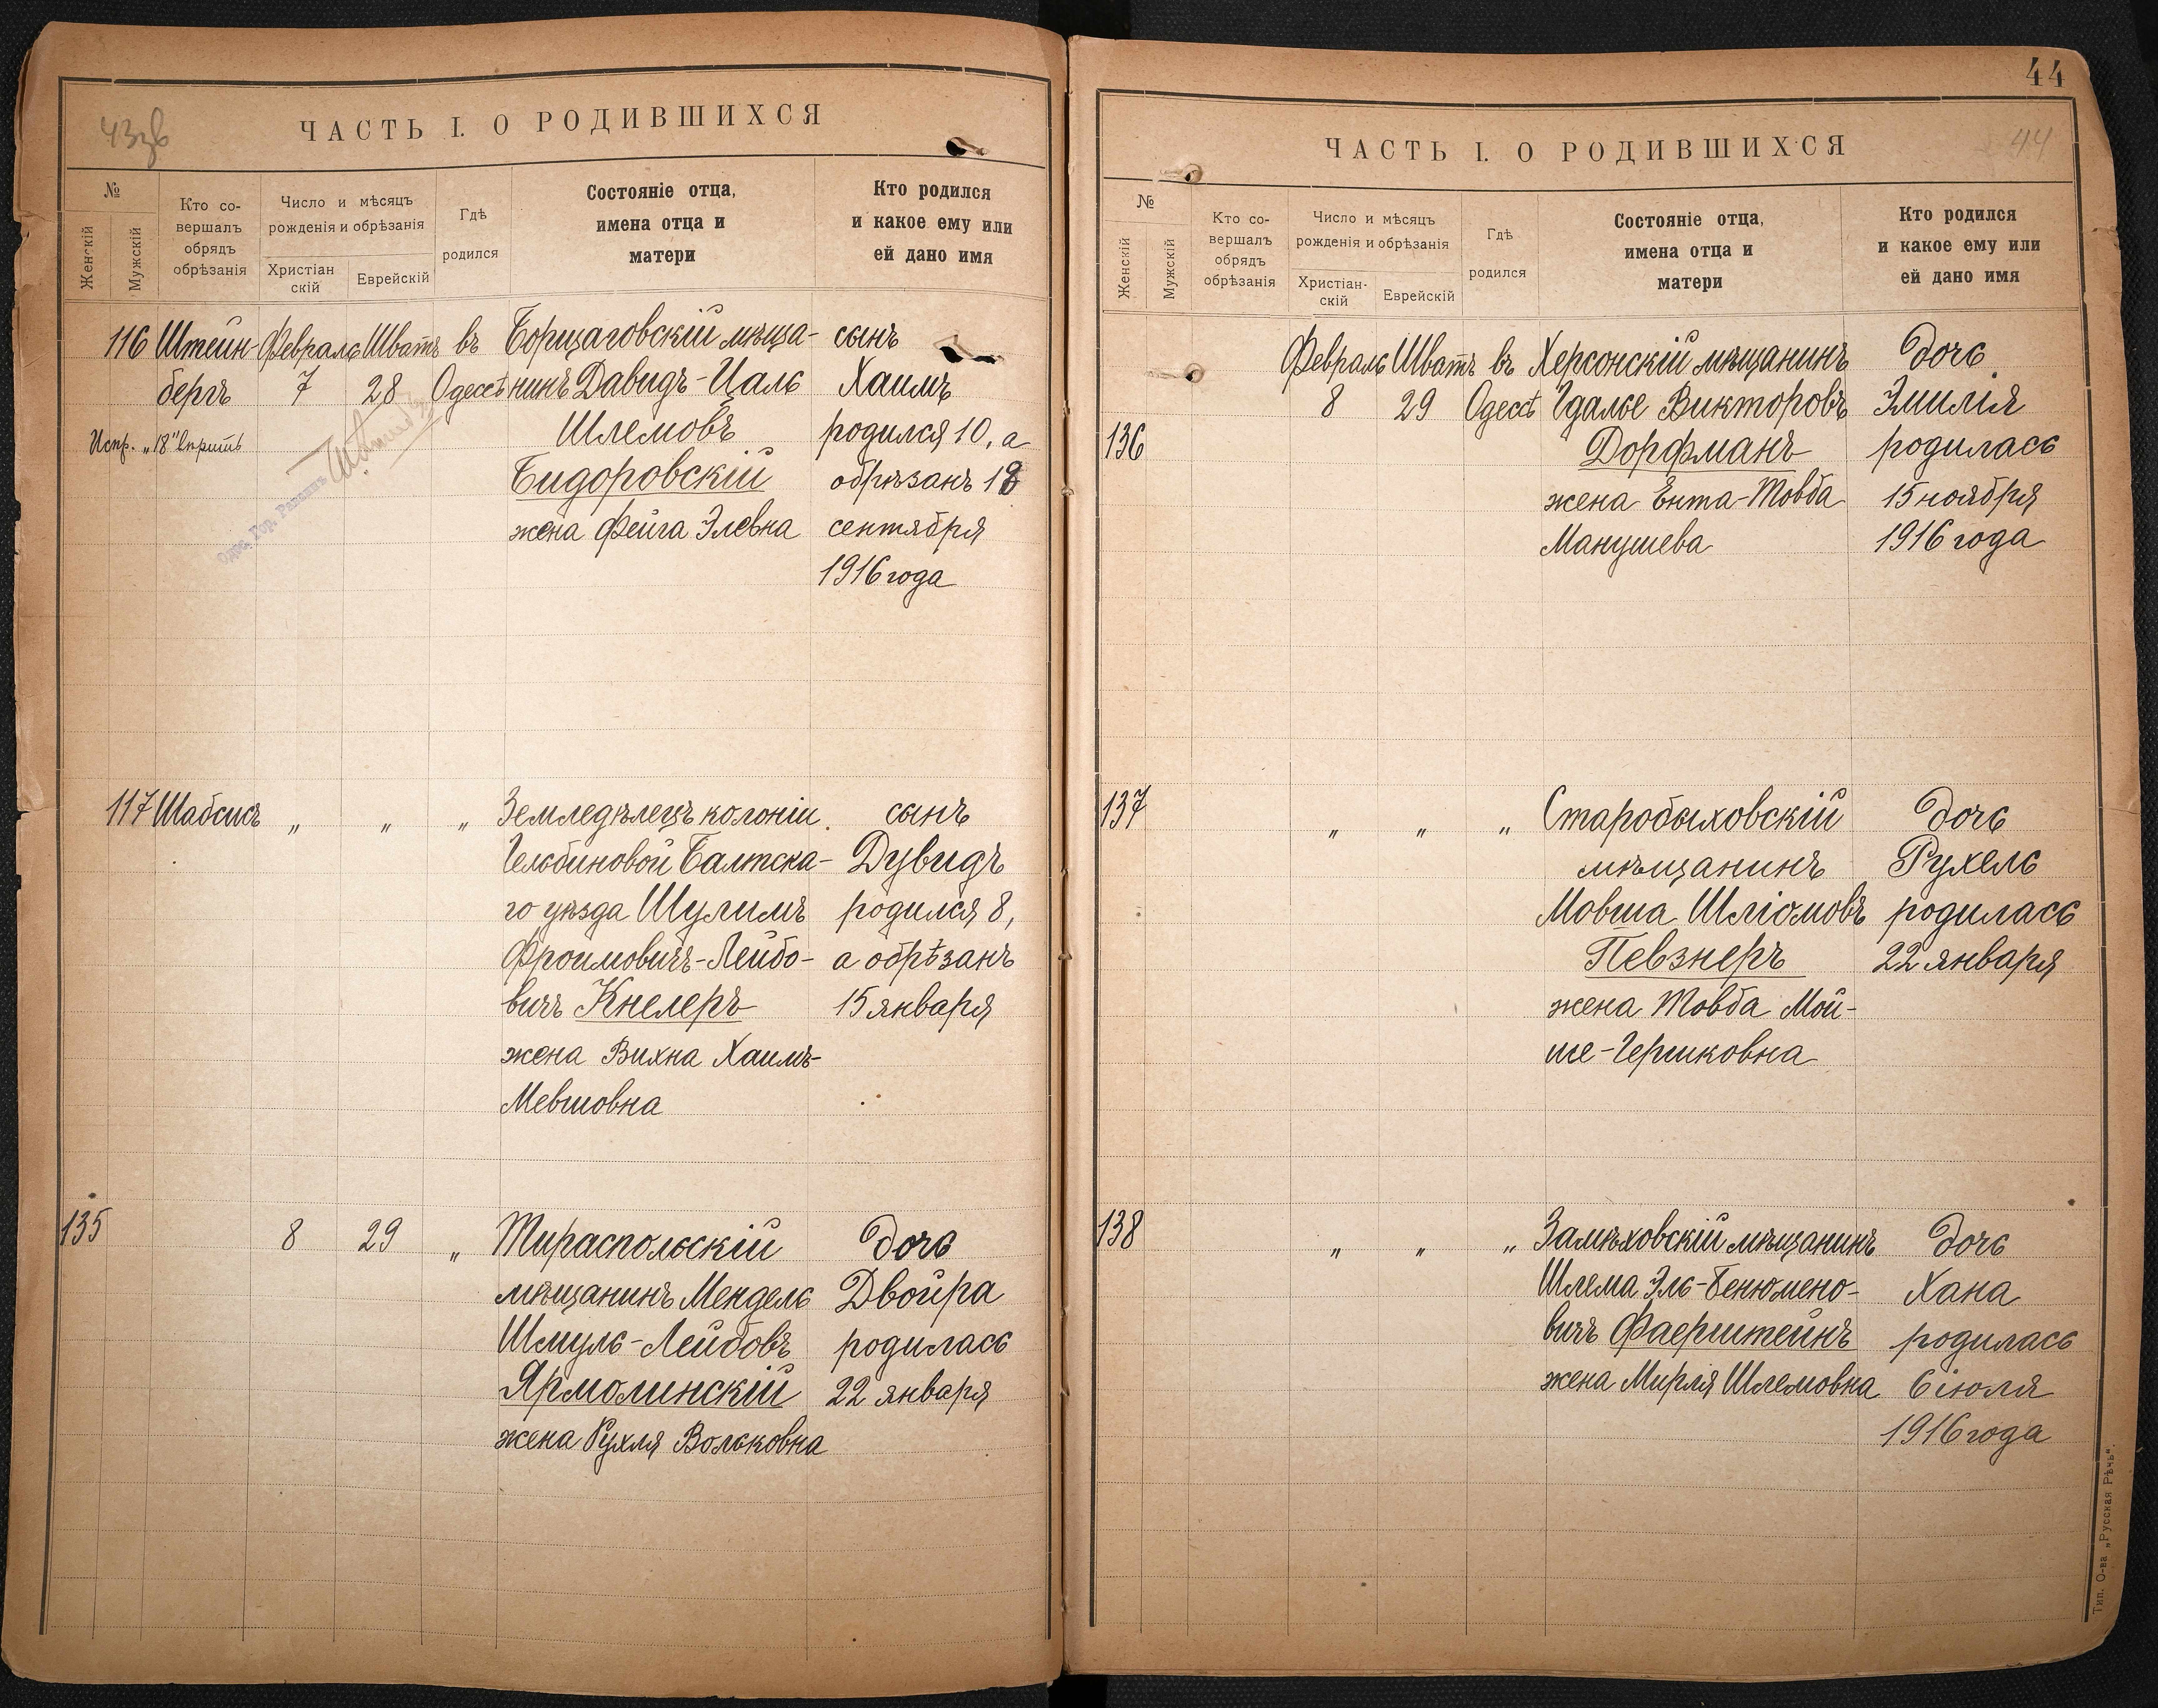 43зв
ЧАСТЬ I. О РОДИВШИХСЯ
№
Женскій
Мужскій
Кто со-
вершалъ
обрядъ
обрѣзанія
Число и мѣсяцъ
рожденія и обрѣзанія
Христіан
скій
Еврейскій
Гдѣ
родился
Состояніе отца,
имена отца и
матери
Кто родился
и какое ему или
ей дано имя
116 Штейн- Февраль Шватъ въ Борщаговскій мѣща- сынъ
бергъ 7 28 Одессѣ нинъ Давидъ-Ицль Хаимъ
Шлемовъ родился 10, а
Испр. „18" вѣрить
Бидоровскій обрѣзанъ 18
жена Фейга Элевна сентября
1916 года
Одес. Гор. Раввинъ
117 Шабсисъ „ „ „ Земледѣлецъ колоніи сынъ
Гельбиновой Балтска- Дувидъ
го уѣзда Шулимъ родился 8,
Фроимовичъ-Лейбо- а обрѣзанъ
вичъ Кнелеръ 15 января
жена Вихна Хаимъ-
Мевшовна
135 8 29 „ Тираспольскій дочь
мѣщанинъ Мендель Двойра
Шмуль-Лейбовъ родилась
Ярмолинскій 22 января
жена Рухля Вольковна
44
ЧАСТЬ I. О РОДИВШИХСЯ
44
№
Женскій
Мужскій
Кто со-
вершалъ
обрядъ
обрѣзанія
Число и мѣсяцъ
рожденія и обрѣзанія
Христіан-
скій
Еврейскій
Гдѣ
родился
Состояніе отца,
имена отца и
матери
Кто родился
и какое ему или
ей дано имя
Февраль Шватъ въ Херсонскій мѣщанинъ дочь
8 29 Одессѣ Гдалье Викторовъ Эмилія
136 Дорфманъ родилась
жена Ента-Товба 15 ноября
Манушева 1916 года
137 „ „ „ Старобыховскій дочь
мѣщанинъ Рухель
Мовша Шліомовъ родилась
Певзнеръ 22 января
жена Товба Мой-
ше-Гершковна
138 „ „ „ Замѣховскій мѣщанинъ дочь
Шлема Эль-Бенюмено- Хана
вичъ Фаерштейнъ родилась
жена Мирля Шлемовна 6 іюля
1916 года
Тип. О-ва „Русская Рѣчь".